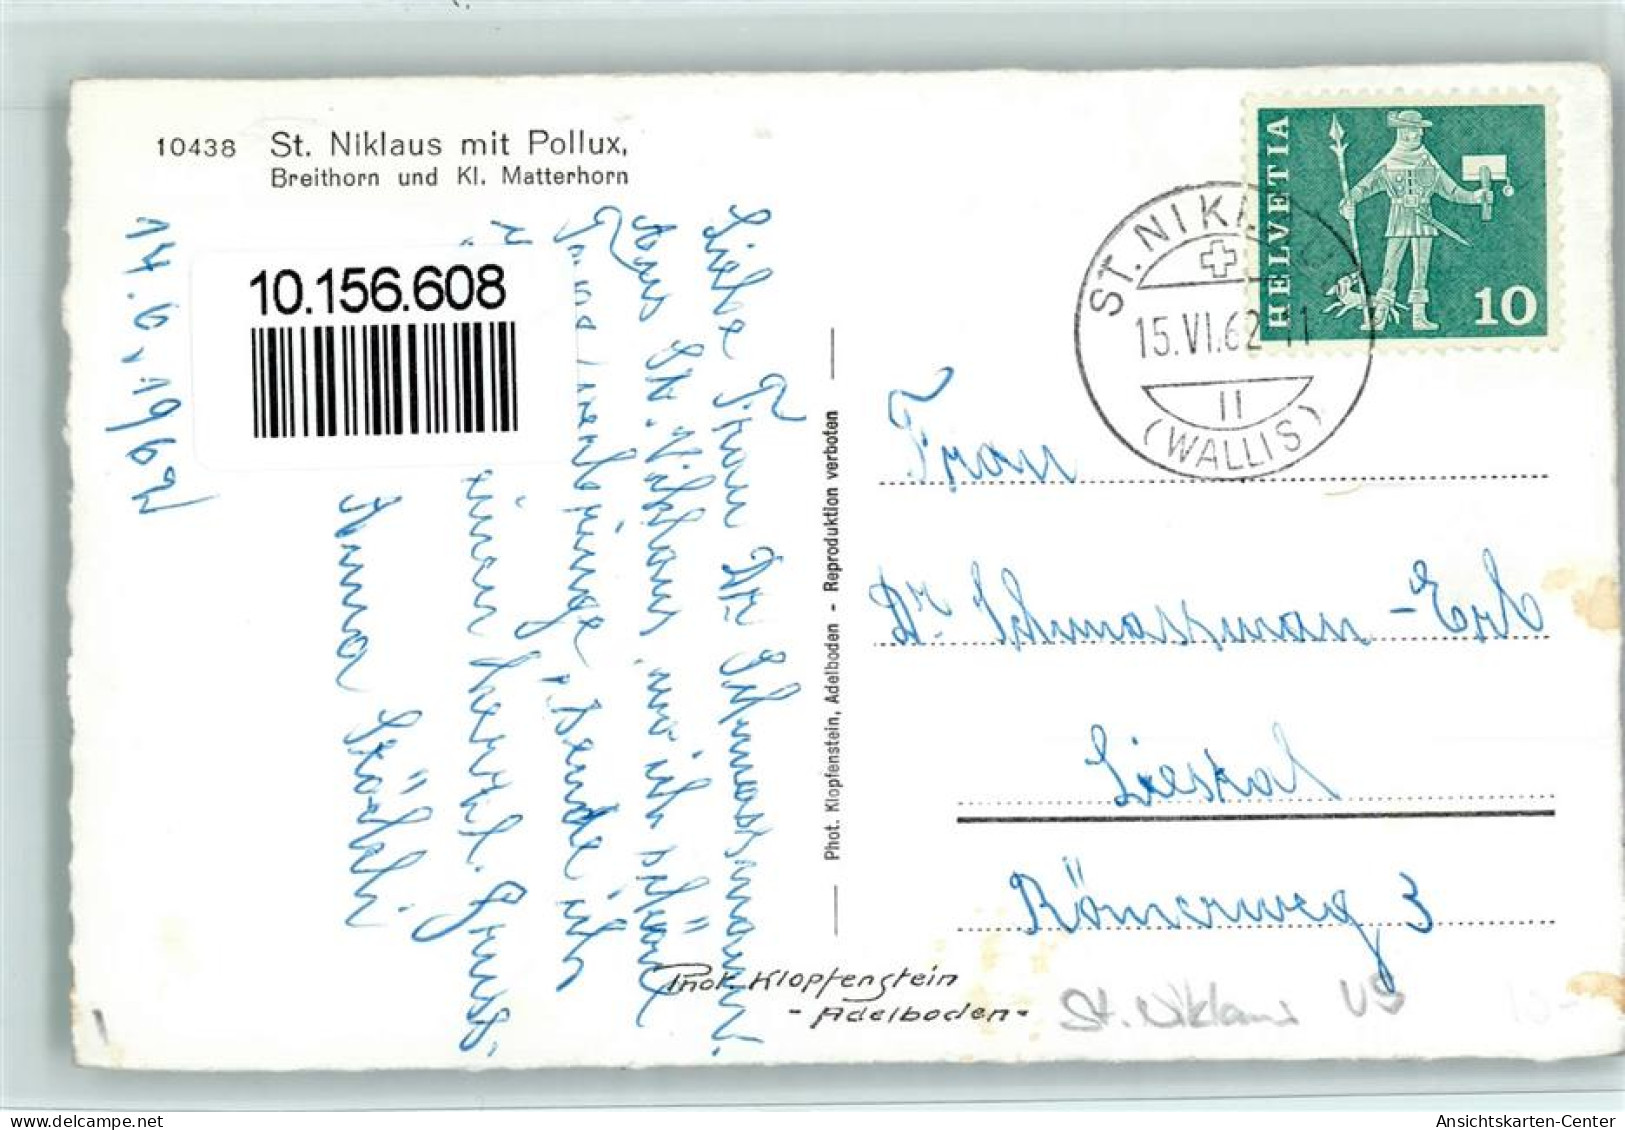 10438 St. Niklaus mit Pollux,
Breithorn und Kl. Matterhorn
10.156.608
14.6.1962
Liebe Frau Dr Schmassmann.
Aus St. Niklaus, wo ich schöne
verbringe, sende ich
einen herzl. Gruss.
Anna
Phot. Klopfenstein, Adelboden - Reproduktion verboten
HELVETIA
10
ST. NIKLAUS
15.VI.62-11
11
(WALLIS)
Frau
Dr. Schmassmann-Erb
Liestal
Römerweg 3
Phot. Klopfenstein
- Adelboden -
St. Niklaus VS
delcampe.net
Ansichtskarten-Center